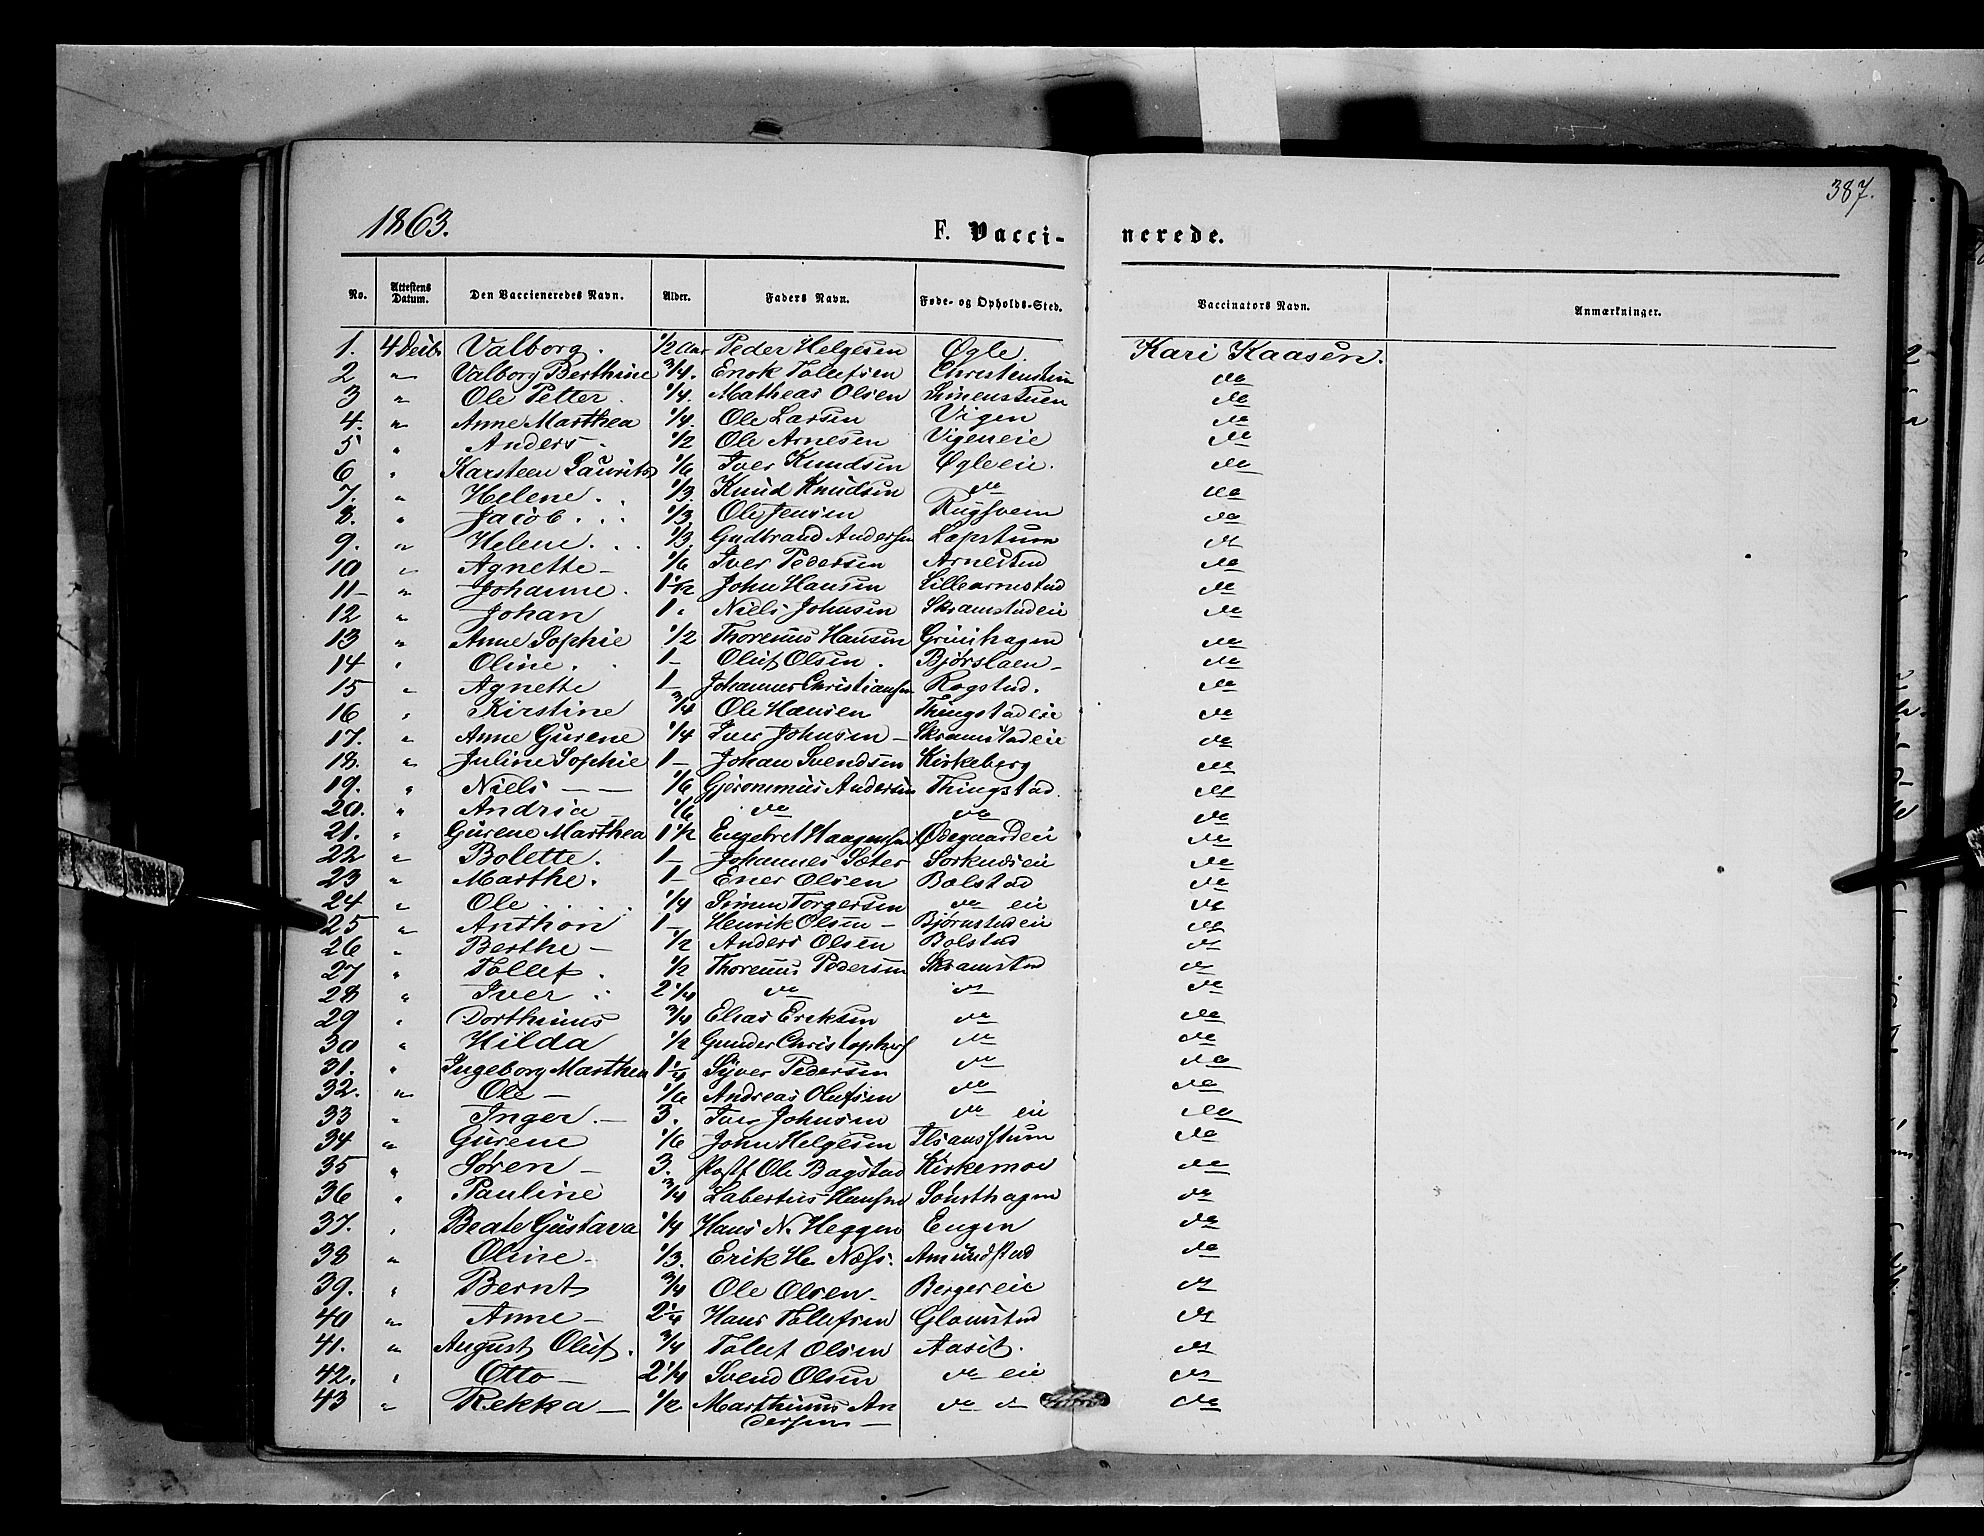 387.
1863. F. Vacci- nerede.
No. Attestens Datum. Den Vaccieneredes Navn. Alder. Faders Navn. Føde- og Opholds-Sted. Vaccinators Navn. Anmærkninger.
1. 4 Decbr Valborg. 1/2 Aar Peder Helgesen Øgle. Kari Kaasen.
2 " Valborg Berthine 3/4. Enok Tollefsen Christenstuen do
3 " Ole Petter. 1/4. Matheas Olsen Simenstuen do
4. " Anne Marthea 1/4. Ole Larsen Vigen do
5 " Anders. 1/2 Ole Arnesen Vigeneie do
6 " Karsteen Laurits 1/6 Iver Knudsen Øgleeie. do
7. " Helene. 1/3. Knud Knudsen do do
8. " Jacob. 1/3. Ole Jensen Rugsveen do
9. " Helene. 1/3. Gudbrand Andersen Løpstuen do
10 " Agnette - 1/6 Iver Pedersen Arnestad do
11 - " Johanne. 1 1/2 John Hansen Lillearnestad do
12 " Johan 1. Niels Johnsen Skramstadeie do
13 " Anne Sophie 1/2 Thorenus Hansen Grünhagen do
14 " Oline. 1 - Oluf Olsen. Bjørslaen - do
15 " Agnette 1 - Johannes Christiansen Rogstad. do
16 " Kirstine 3/4 Ole Hansen Thingstadeie do
17. " Anne Gurene 1/4 Iver Johnsen - Skramstadeie do
18. " Juline Sophie 1 - Johan Svendsen Kirkeberg do
19. " Niels - - 1/6 Gjeronimus Andersen Thingstad. do
20. " Andria - 1/6 do do do
21. " Gurene Marthea 1 1/2 Engebret Haagensen Ødegaardeie do
22 " Bolette. 1 - Johannes Sæter Sorknæseie do
23 " Marthe. 1 - Ener Olsen Bolstad do
24 " Ole 1/4 Simen Torgersen do eie do
25 " Anthon 1 - Henrik Olsen - Bjørnstadeie do
26 " Berthe - 1/2 Anders Olsen Bolstad do
27 " Tollef. 1/2 Thorenus Pedersen Skramstad do
28 " Iver 2 1/4 do do do
29 " Dorthinus 3/4 Elias Eriksen do do
30 " Hilda 1/2 Gunder Christophers do do
31. " Ingeborg Marthea 1 1/4 Syver Pedersen do do
32. " Ole - 1/6 Andreas Olufsen do do
33 " Inger. - 3. Iver Johnsen do eie do
34 " Gurene 1/6 John Helgesen do
35 " Søren - 3. Ole Bagstad Kirkemoe do
36 " Pauline 3/4 Labertus Hansen Sønsthagen do
37. " Beate Gustava 1/4 Hans N. Heggen Engen do
38 " Oline - 1/3. Erik H. Næss. Amundstad do
39. " Bernt 3/4 Ole Olsen. Bergereie do
40 " Anne - 2 1/4 Hans Tollefsen Glomstad do
41. " August Oluf. 3/4 Tollef Olsen Aaset. do
42. " Otto - 2 1/4 Svend Olsen do eie do
43 " Rekka - 1/2 Marthinus An do do do
dersen -